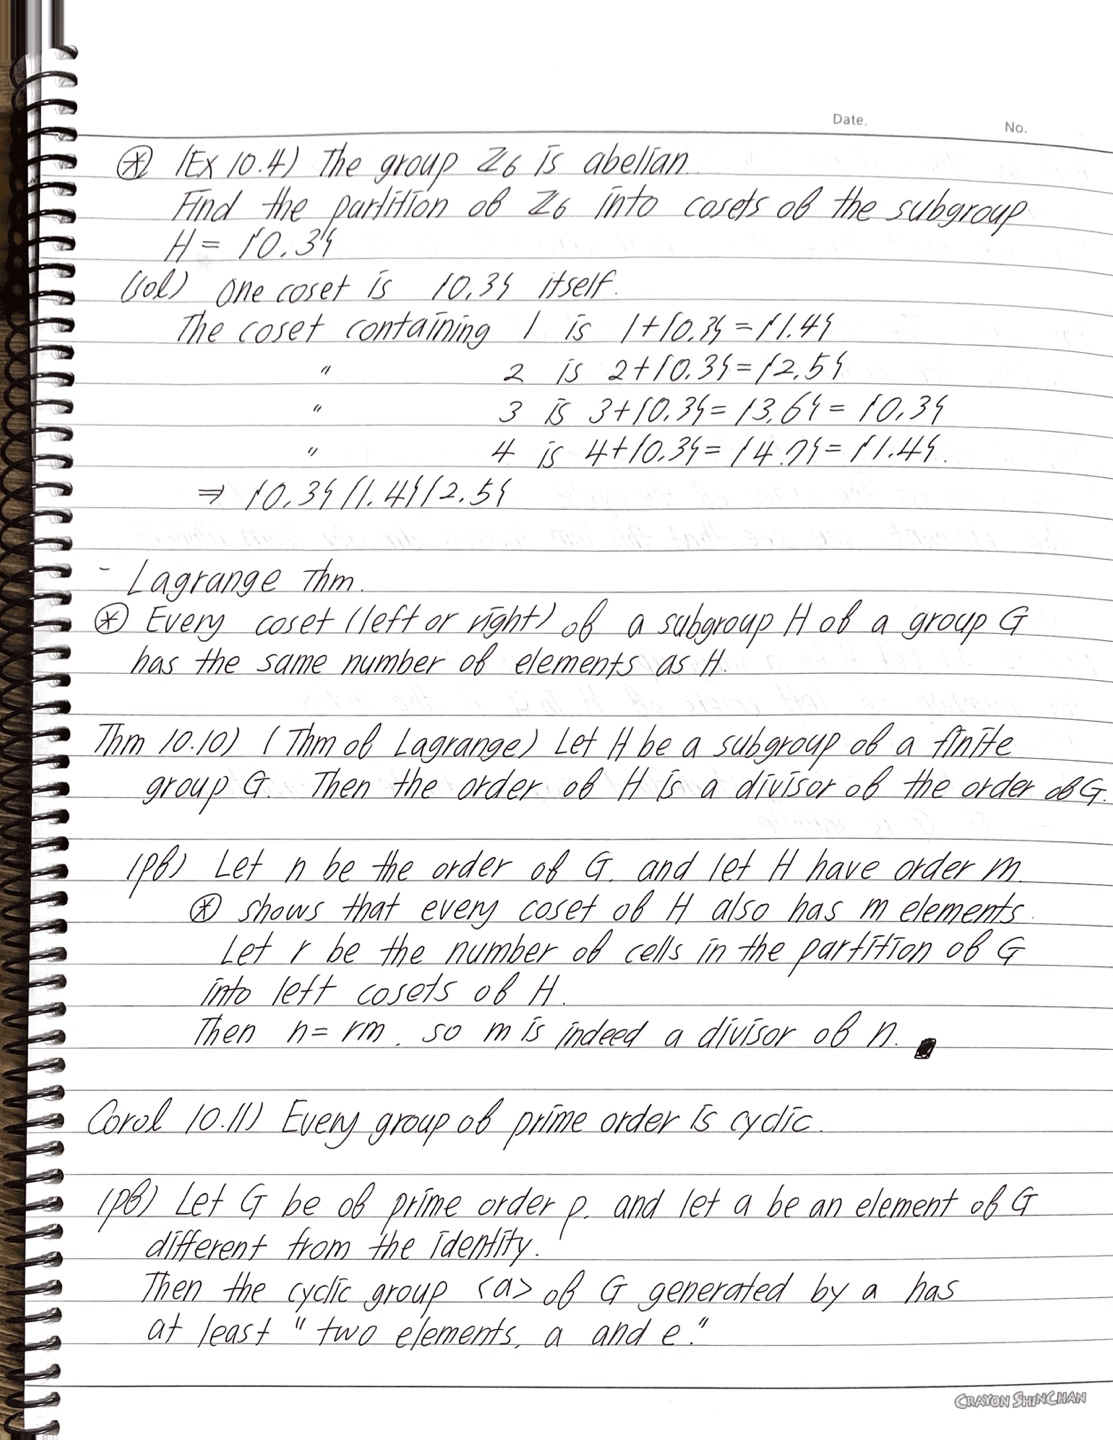 Date.
No.
⊛ (Ex 10.4) The group ℤ6 is abelian.
Find the partition of ℤ6 into cosets of the subgroup
H = {0.3}
(sol) One coset is {0.3} itself.
The coset containing 1 is 1+{0.3}={1.4}
〃 2 is 2+{0.3}={2.5}
〃 3 is 3+{0.3}={3.6}={0.3}
〃 4 is 4+{0.3}={4.7}={1.4}.
⇒ {0.3}{1.4}{2.5}
- Lagrange Thm.
⊛ Every coset (left or right) of a subgroup H of a group G
has the same number of elements as H.
Thm 10.10) (Thm of Lagrange) Let H be a subgroup of a finite
group G. Then the order of H is a divisor of the order of G.
(pf) Let n be the order of G. and let H have order m.
⊛ shows that every coset of H also has m elements.
Let r be the number of cells in the partition of G
into left cosets of H.
Then n = rm. so m is indeed a divisor of n. ■
Corol 10.11) Every group of prime order is cyclic.
(pf) Let G be of prime order p. and let a be an element of G
different from the identity.
Then the cyclic group <a> of G generated by a has
at least "two elements, a and e."
CRAYON SHINCHAN